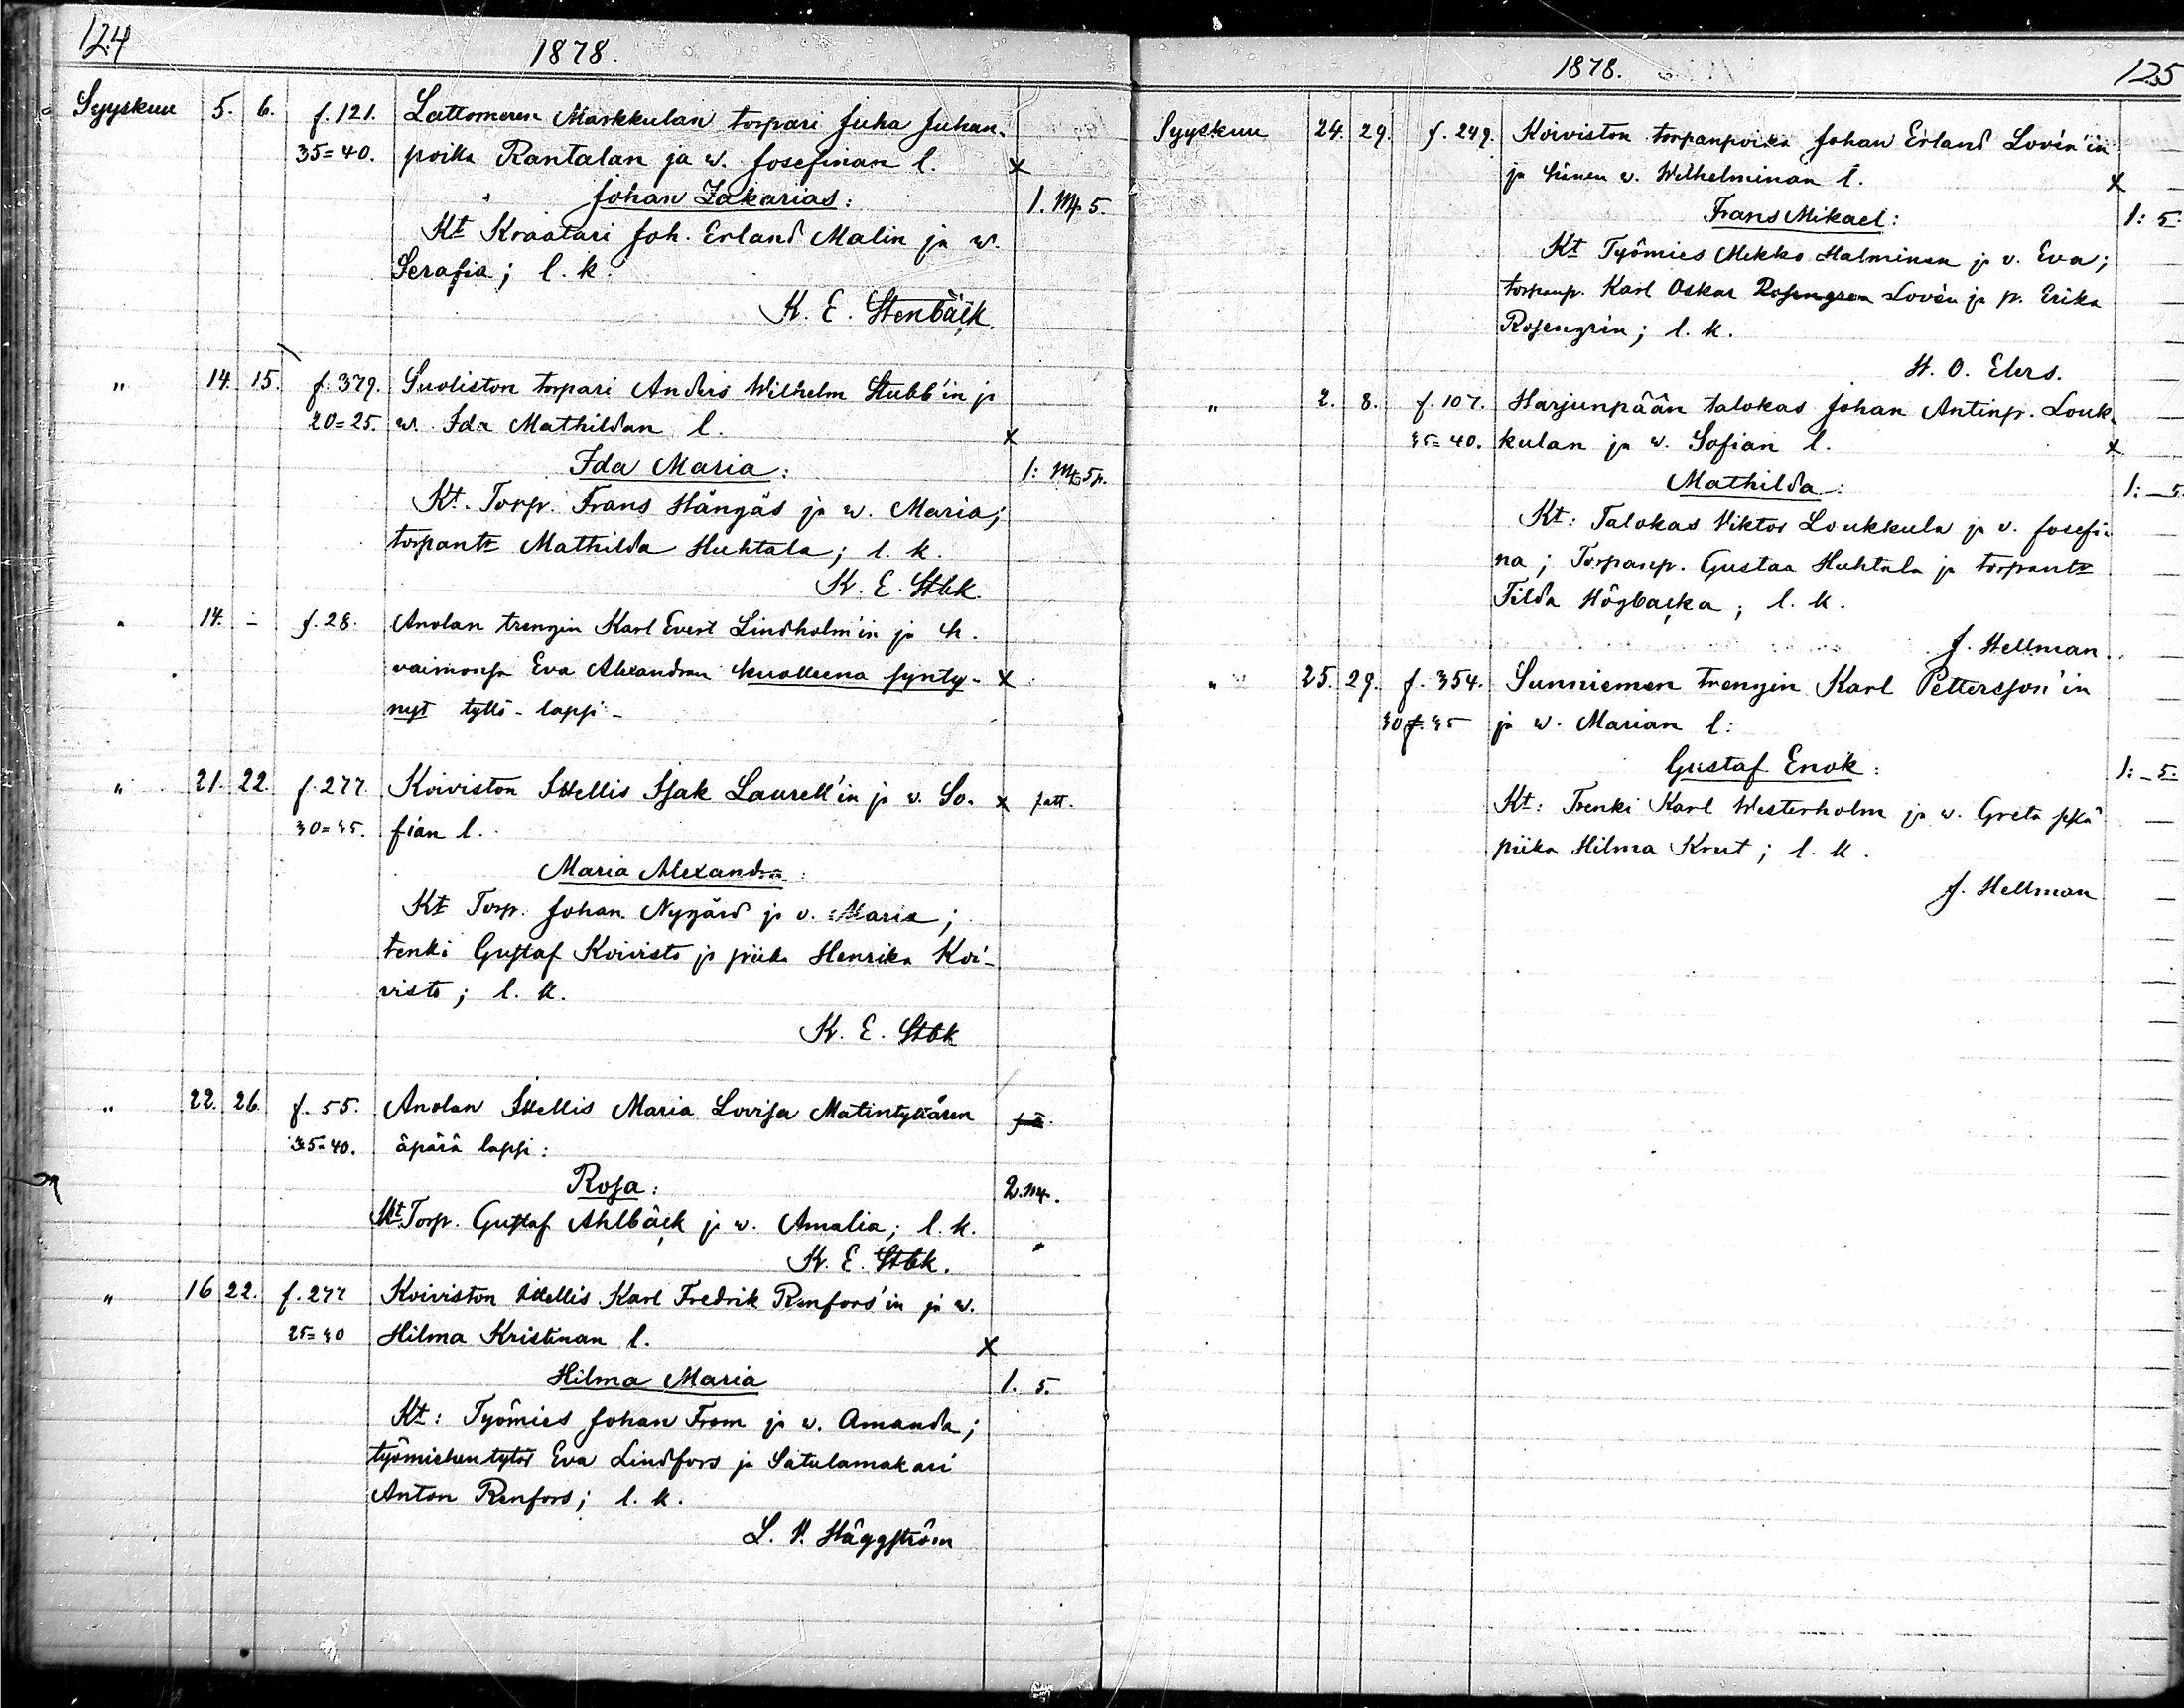 124
1878.
Syyskuu 5. 6. f. 121. Lattomeren Markkulan torpari Juha Juhan-
35=40. poika Rantalan ja w. Josefinan l. x
Johan Zakarias: 1. Mp 5.
Kt Kraatari Joh. Erland Malin ja w.
Serafia; l. k.
K. E. Stenbäck.
" 14. 15. f. 379. Suoliston torpari Anders Wilhelm Stubb'in ja
20=25. w. Ida Mathildan l. x
Ida Maria: 1: Mk 5p.
Kt. Torp. Frans Hängäs ja w. Maria;
torpantr Mathilda Huhtala; l. k.
K. E. Stbk.
" 14. - f. 28. Anolan trengin Karl Evert Lindholm'in ja h.
vaimonsa Eva Alexandran kuolleena synty- x
nyt tyttö-lapsi-
" 21. 22. f. 277. Koiviston Itellis Isak Laurell'in ja v. So- x
30=35. fian l.
Maria Alexandra:
Kt Torp. Johan Nygård ja v. Maria;
tenki Gustaf Koivisto ja piika Henrika Koi-
visto; l. k.
K. E. Stbk
" 22. 26. f. 55. Anolan Itellis Maria Lovisa Matintyttären
35=40. äpärä lapsi:
Rosa: 2. mp.
Kt Torp. Gustaf Ahlbäck ja w. Amalia; l. k.
K. E. Stbk.
" 16 22. f. 277 Koiviston Itellis Karl Fredrik Renfors'in ja w.
25=30 Hilma Kristinan l. x
Hilma Maria 1. 5.
Kt: Työmies Johan From ja w. Amanda;
työmiehen tytör Eva Lindfors ja Satulamakari
Anton Renfors; l. k.
L. V. Häggström
1878. 125
Syyskuu 24. 29. f. 249. Koiviston torpanpoika Johan Erland Lovén'in
ja hänen v. Wilhelminan l. x
Frans Mikael: 1: 5.
Kt Työmies Mikko Malminen ja v. Eva;
torpanp. Karl Oskar Rosengren Lovén ja p. Erika
Rosengrén; l. k.
H. O. Elers.
" 2. 8. f. 107. Harjunpään talokas Johan Antinp. Louk-
35=40. kulan ja w. Sofian l. x
Mathilda: 1: _ 5.
Kt: Talokas Viktor Loukkula ja v. Josefi-
na; Torpanp. Gustaa Huhtala ja torpantr
Tilda Högbacka; l. k.
J. Hellman.
" 25. 29. f. 354. Sunniemen trengin Karl Pettersson'in
30=35 ja w. Marian l:
Gustaf Enok: 1: _ 5.
Kt: Trenki Karl Westerholm ja w. Greta sekä
piika Hilma Krut; l. k.
J. Hellman